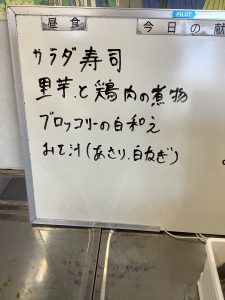 PILOT
昼食 今日の献
サラダ寿司
里芋と鶏肉の煮物
ブロッコリーの白和え
みそ汁(あさり、白ねぎ)